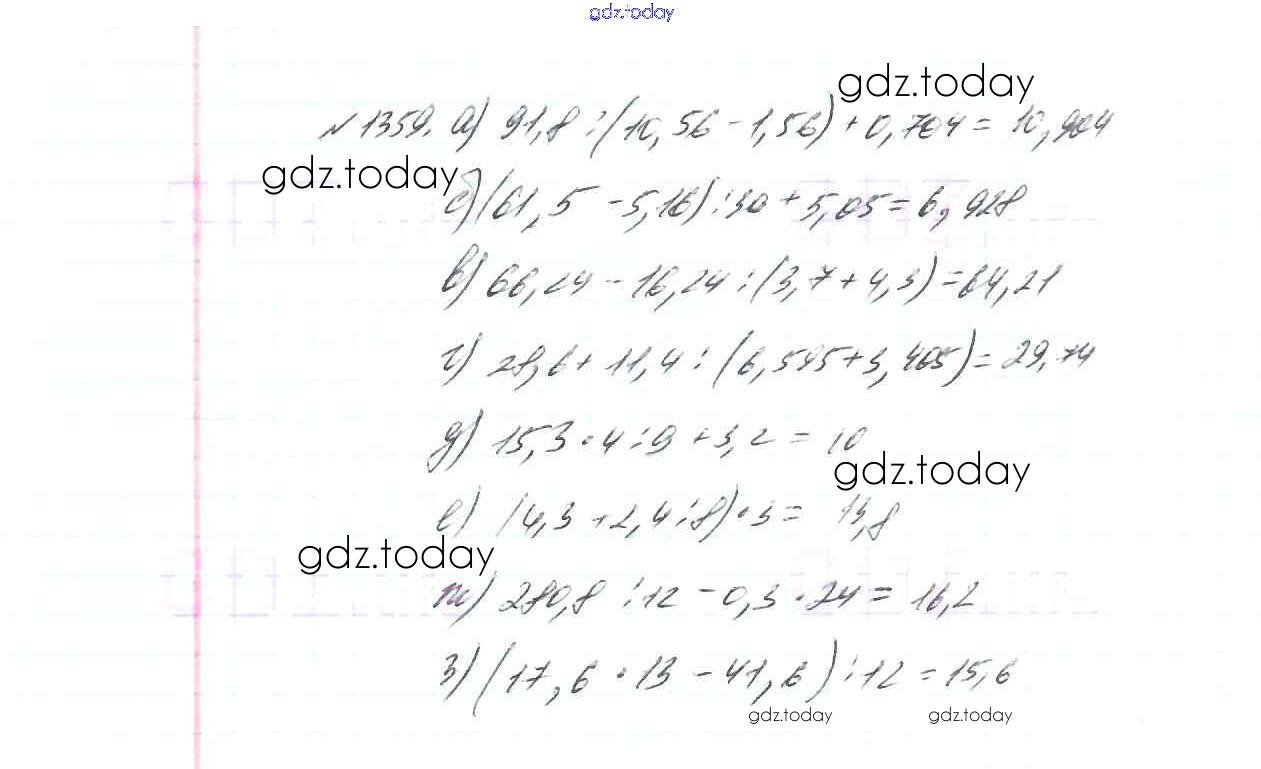 gdz.today
gdz.today
№1359. а) 91,8 : (10,56 - 1,56) + 0,704 = 10,904
gdz.today
б) (61,5 - 5,16) : 30 + 5,05 = 6,928
в) 66,24 - 16,24 : (3,7 + 4,3) = 64,21
г) 28,6 + 11,4 : (6,595 + 3,405) = 29,74
д) 15,3 · 4 : 9 + 3,2 = 10
gdz.today
е) (4,3 + 2,4 : 8) · 3 = 13,8
gdz.today
ж) 280,8 : 12 - 0,3 · 24 = 16,2
з) (17,6 · 13 - 41,6) : 12 = 15,6
gdz.today gdz.today